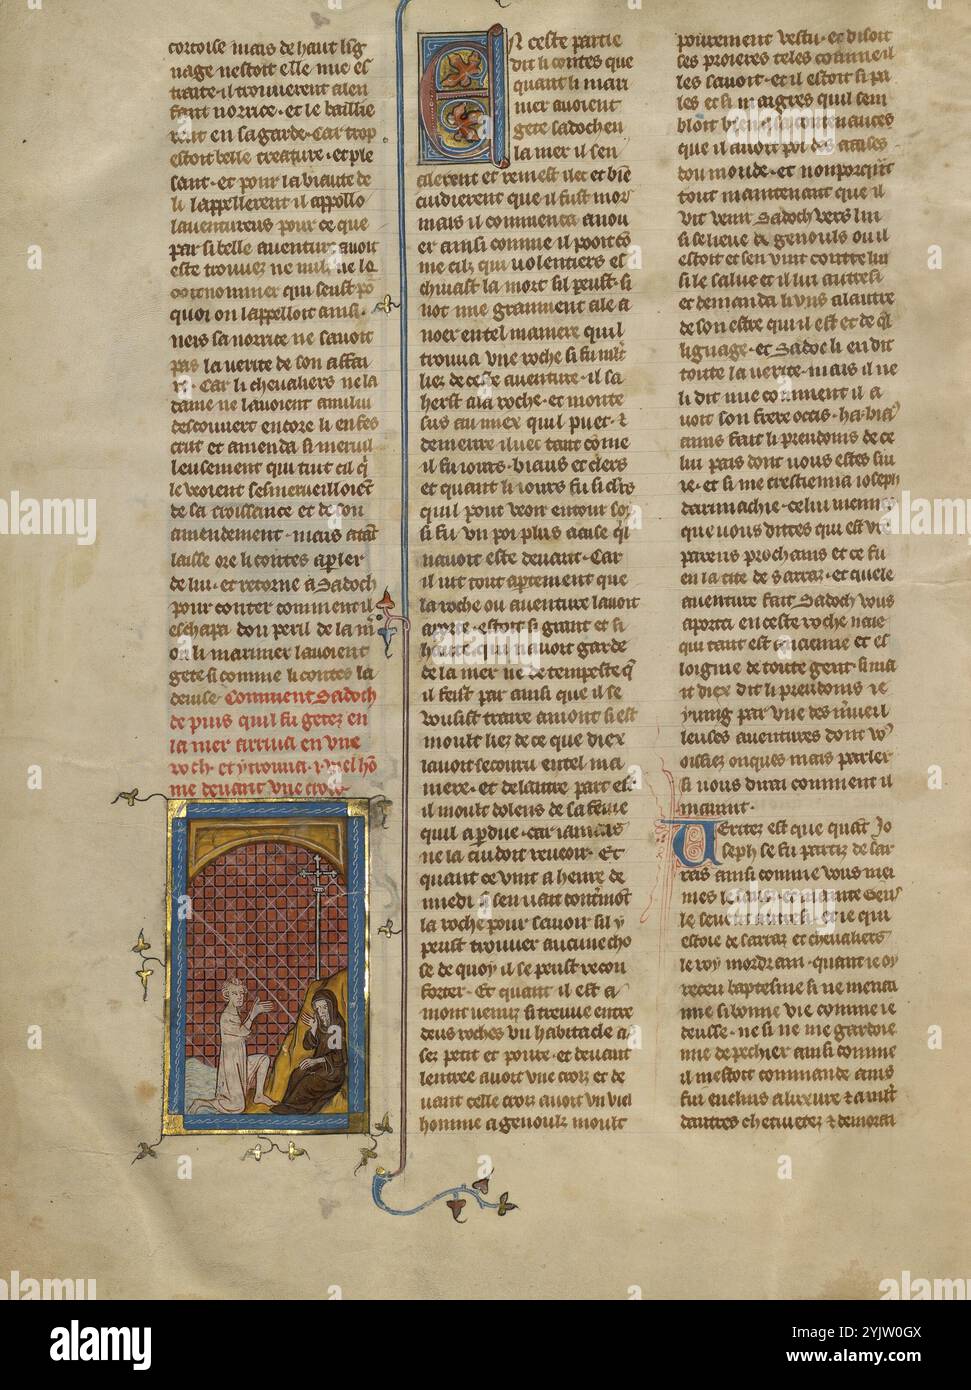 cortoise mais de haut lig
nage nestoit elle mie es
traite il trouverent alen
fant norrice et le baillie
rent en sa garde Car trop
estoit belle creature et ple
sant et pour la biaute de
li lappellerent il appollo
laventureus pour ce que
par si belle aventure avoit
este trouvez ne nulz ne le
quoi on lappelloit ainsi
neis sa norrice ne savoit
pas la verite de son affai
re Car li chevaliers ne la
dame ne lavoient a nului
descouvert encore li enfes
crut et amenda si mervil
leusement que tuit cil qi
le veoient sesmerveilloient
de sa croissance et de son
amendement mais atant
laisse ore li contes a parler
de lui et retorne a Sadoch
pour conter comment il
eschapa dou peril de la mer
ou li marinier lavoient
gete si comme li contes la
devise Comment Sadoch
de puis quil fu getez en
la mer arriva en une
roch et y trouva i viel ho
me devant une croix
En ceste partie
dit li contes que
quant li mari
nier avoient
gete sadoch en
la mer il sen
alerent et remest ilec et bien
cuidierent que il fust mors
mais il commenca a nou
er ainsi comme il pooit co
me cilz qui volentiers es
chivast la mort sil peust si
not mie granment ale a
noer en tel maniere quil
trouva une roche si fu mlt
liez de ceste aventure il sa
herst a la roche et monte
sus au miex quil puet et
demeure ilvec tant come
il fu iours biaus et clers
et quant li iours fu si clers
quil pout veoir entour soy
si fu un poi plus a aise qi
navoit este devant Car
il vit tout apertement que
la roche ou aventure lavoit
aporte estoit si grant et si
haute qui navoit garde
de la mer ne de tempeste q
il feist par ainsi que il se
vousist traire amont si est
moult liez de ce que diex
lavoit secouru en tel ma
niere et de lautre part est
il moult dolens de sa feme
quil a perdue car iamais
ne la cuidoit reveoir Et
quant ce vint a heure de
miedi si sen vait contremont
la roche pour savoir sil y
peust trouver aucune cho
se de quoy il se peust recon
forter Et quant il est a
mont venuz si treuve entre
deus roches un habitacle a
sez petit et povre et devant
lentree avoit une croiz et de
vant celle croiz avoit un viel
homme a genoulz moult
povrement vestu et disoit
ses proieres teles comme il
les savoit et il estoit si pa
les et si maigres quil sem
bloit bien a sa contenances
que il avoit poi des aaises
dou monde et nonporqnt
tout maintenant que il
vit venir Sadoch vers lui
si se lieve de genouls ou il
estoit et sen vint contre lui
si le salue et il lui autresi
et demanda li uns a lautre
de son estre qui il est et de ql
lignage et Sadoc li en dit
toute la verite mais il ne
li dit mie comment il a
voit son frere occis ha biax
amis fait li preudoms de ce
lui pais dont vous estes sui
ie et si me crestienna ioseph
darimachie celui meismes
que vous dittes qui est vre
parens prochains et ce fu
en la cite de sarraz et quele
aventure fait Sadoch vous
aporta en ceste roche naie
qui tant est ancienne et es
loigne de toute gent si mait
diex dit li preudoms ie
y ving par une des merveil
leuses aventures dont vos
oissiez onques mais parler
si vous dirai comment il
mavint
Veritez est que quant Jo
seph se fu partiz de sar
ras ainsi comme vous mei
mes le veistes et maintes Gens
le sevent autresi et ie qui
estoie de sarraz et chevaliers
le roy mordrain quant ie oy
receu baptesme si ne menai
mie si bonne vie comme ie
deusse ne si ne me gardoie
mie de pechier ainsi comme
il mestoit commande ains
fui enclins a luxure et a mlt
dautres chetivetez et demorai
alamy
Image ID: 2YJW0GX
www.alamy.com